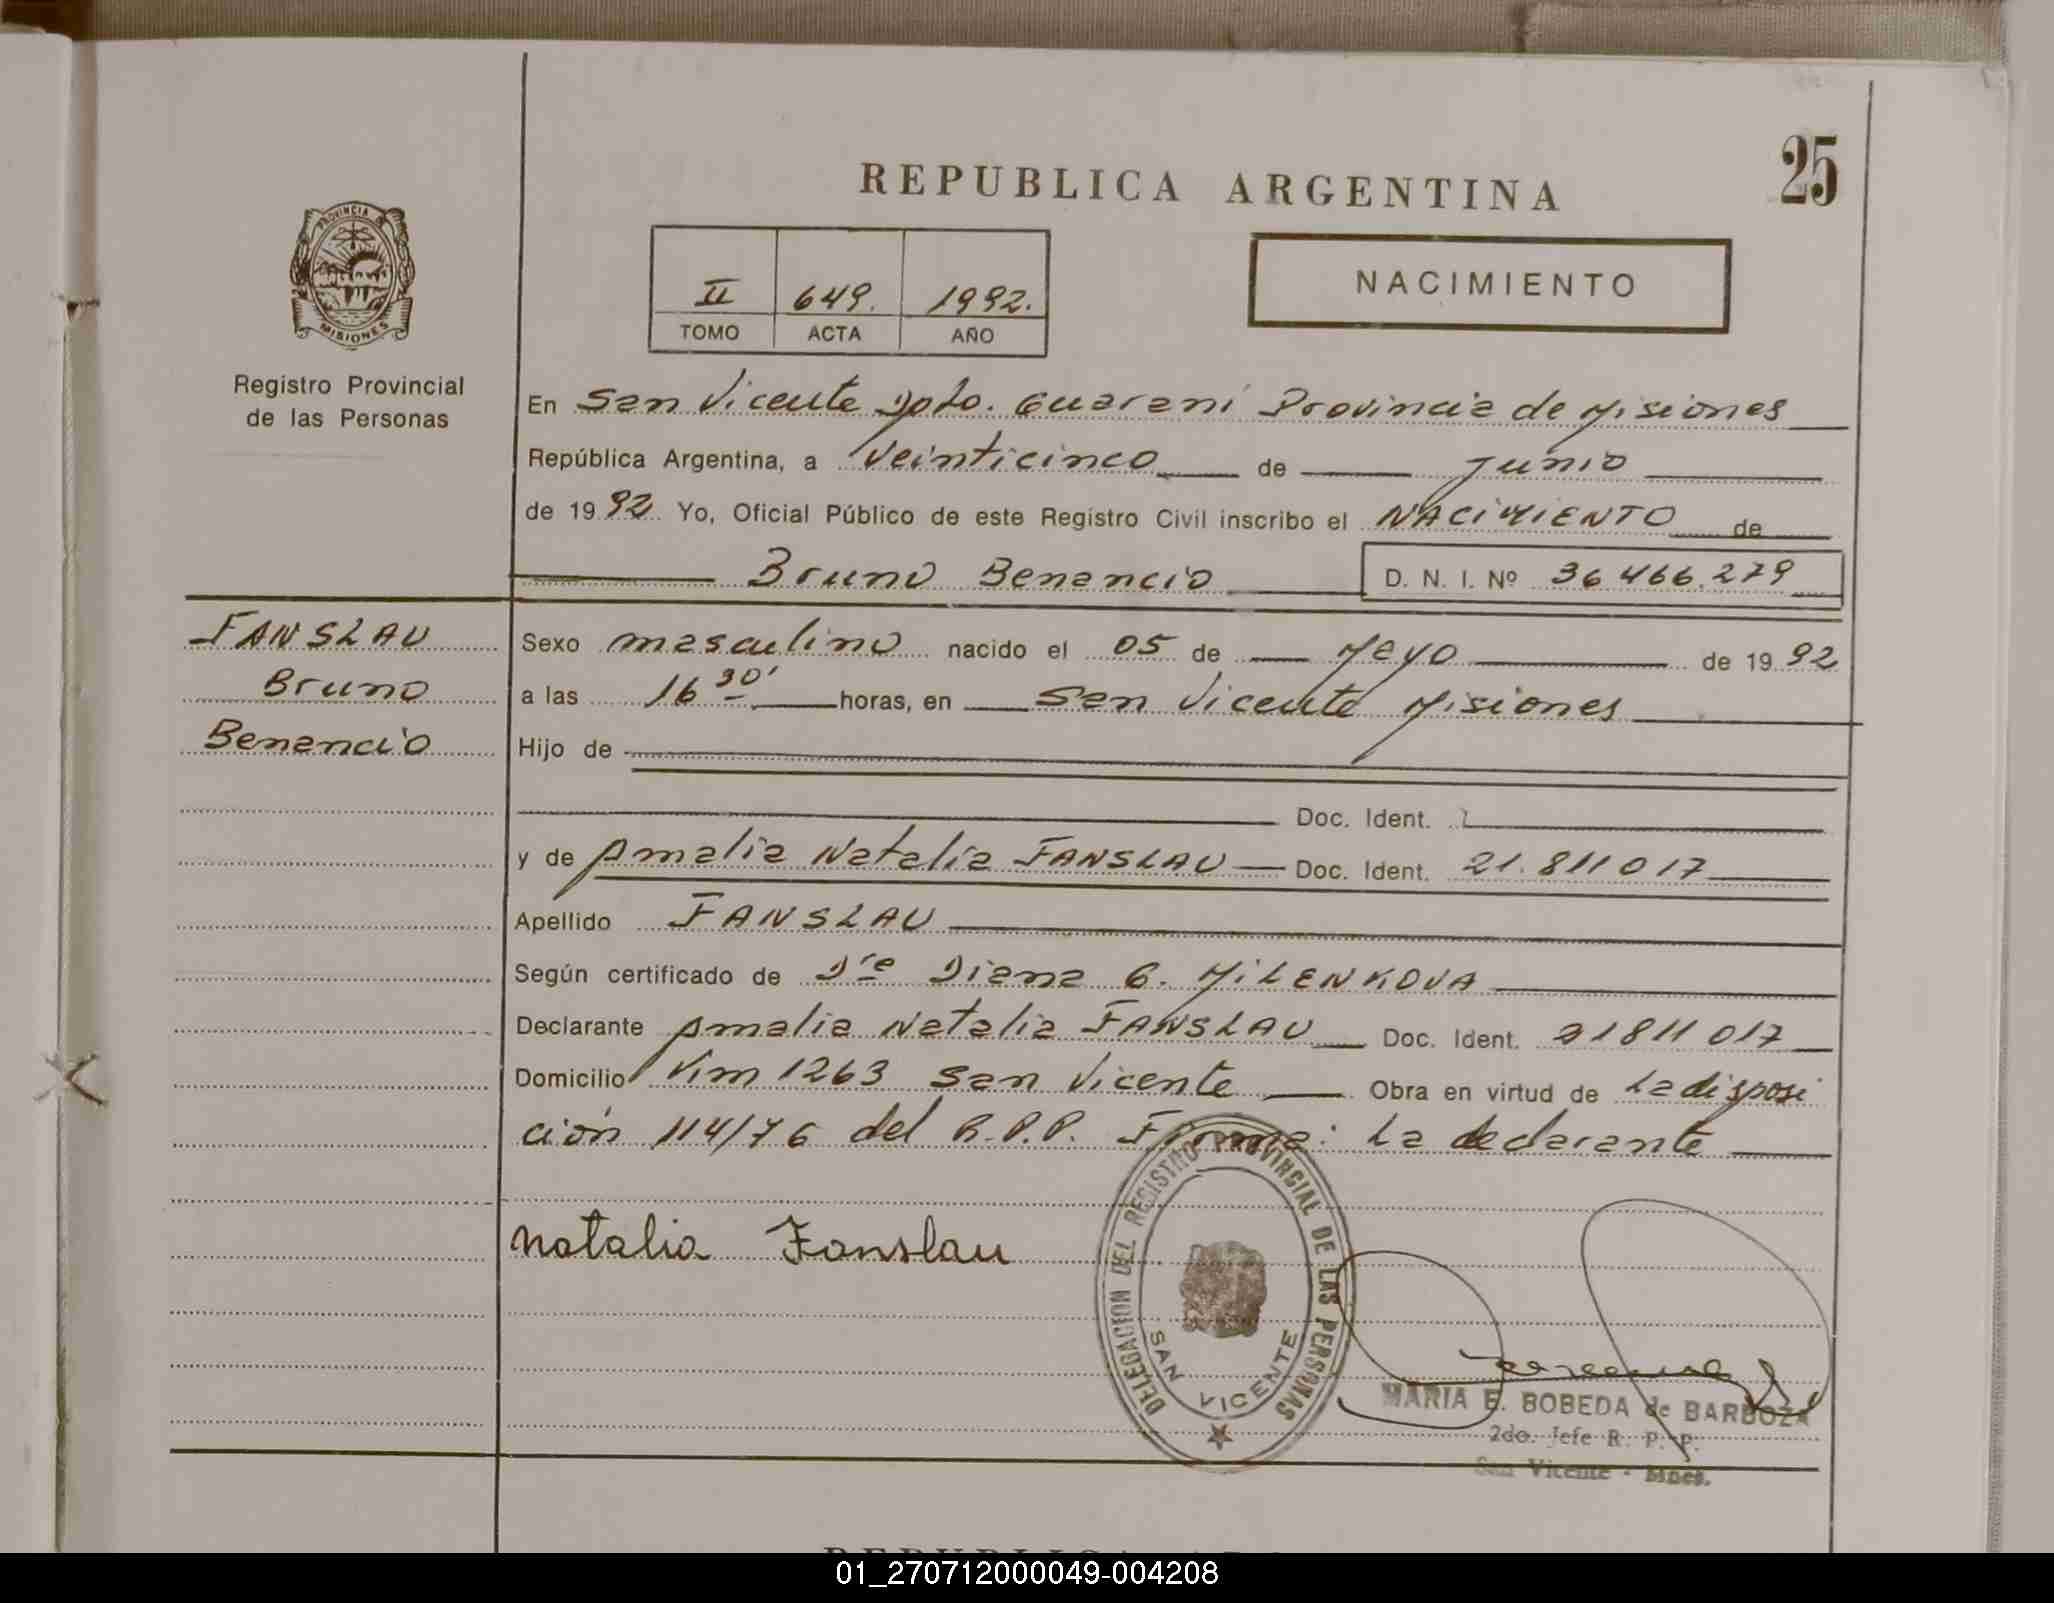 25
REPUBLICA ARGENTINA
PROVINCIA DE
MISIONES
Registro Provincial
de las Personas
II 649. 1992.
TOMO ACTA AÑO
NACIMIENTO
En San Vicente Dpto. Guaraní Provincia de Misiones
República Argentina, a Veinticinco de Junio
de 1992. Yo, Oficial Público de este Registro Civil inscribo el NACIMIENTO de
Bruno Benancio D. N. I. Nº 36 466.279
FANSLAU
Bruno
Benancio
Sexo masculino nacido el 05 de Mayo de 1992
a las 16 30' horas, en San Vicente Misiones
Hijo de
Doc. Ident.
y de Amalia Natalia FANSLAU Doc. Ident. 21.811 017
Apellido FANSLAU
Según certificado de Dra Diana G. MILENKOVA
Declarante Amalia Natalia FANSLAU Doc. Ident. 21811 017
Domicilio Km 1263 San Vicente Obra en virtud de La disposi
ción 114/76 del R.P.P. Firma: La declarante
Natalia Fanslau
DELEGACION DEL REGISTRO PROVINCIAL DE LAS PERSONAS
SAN VICENTE
MARIA E. BOBEDA de BARBOZA
2do. Jefe R. P. P.
San Vicente - Mnes.
01_270712000049-004208